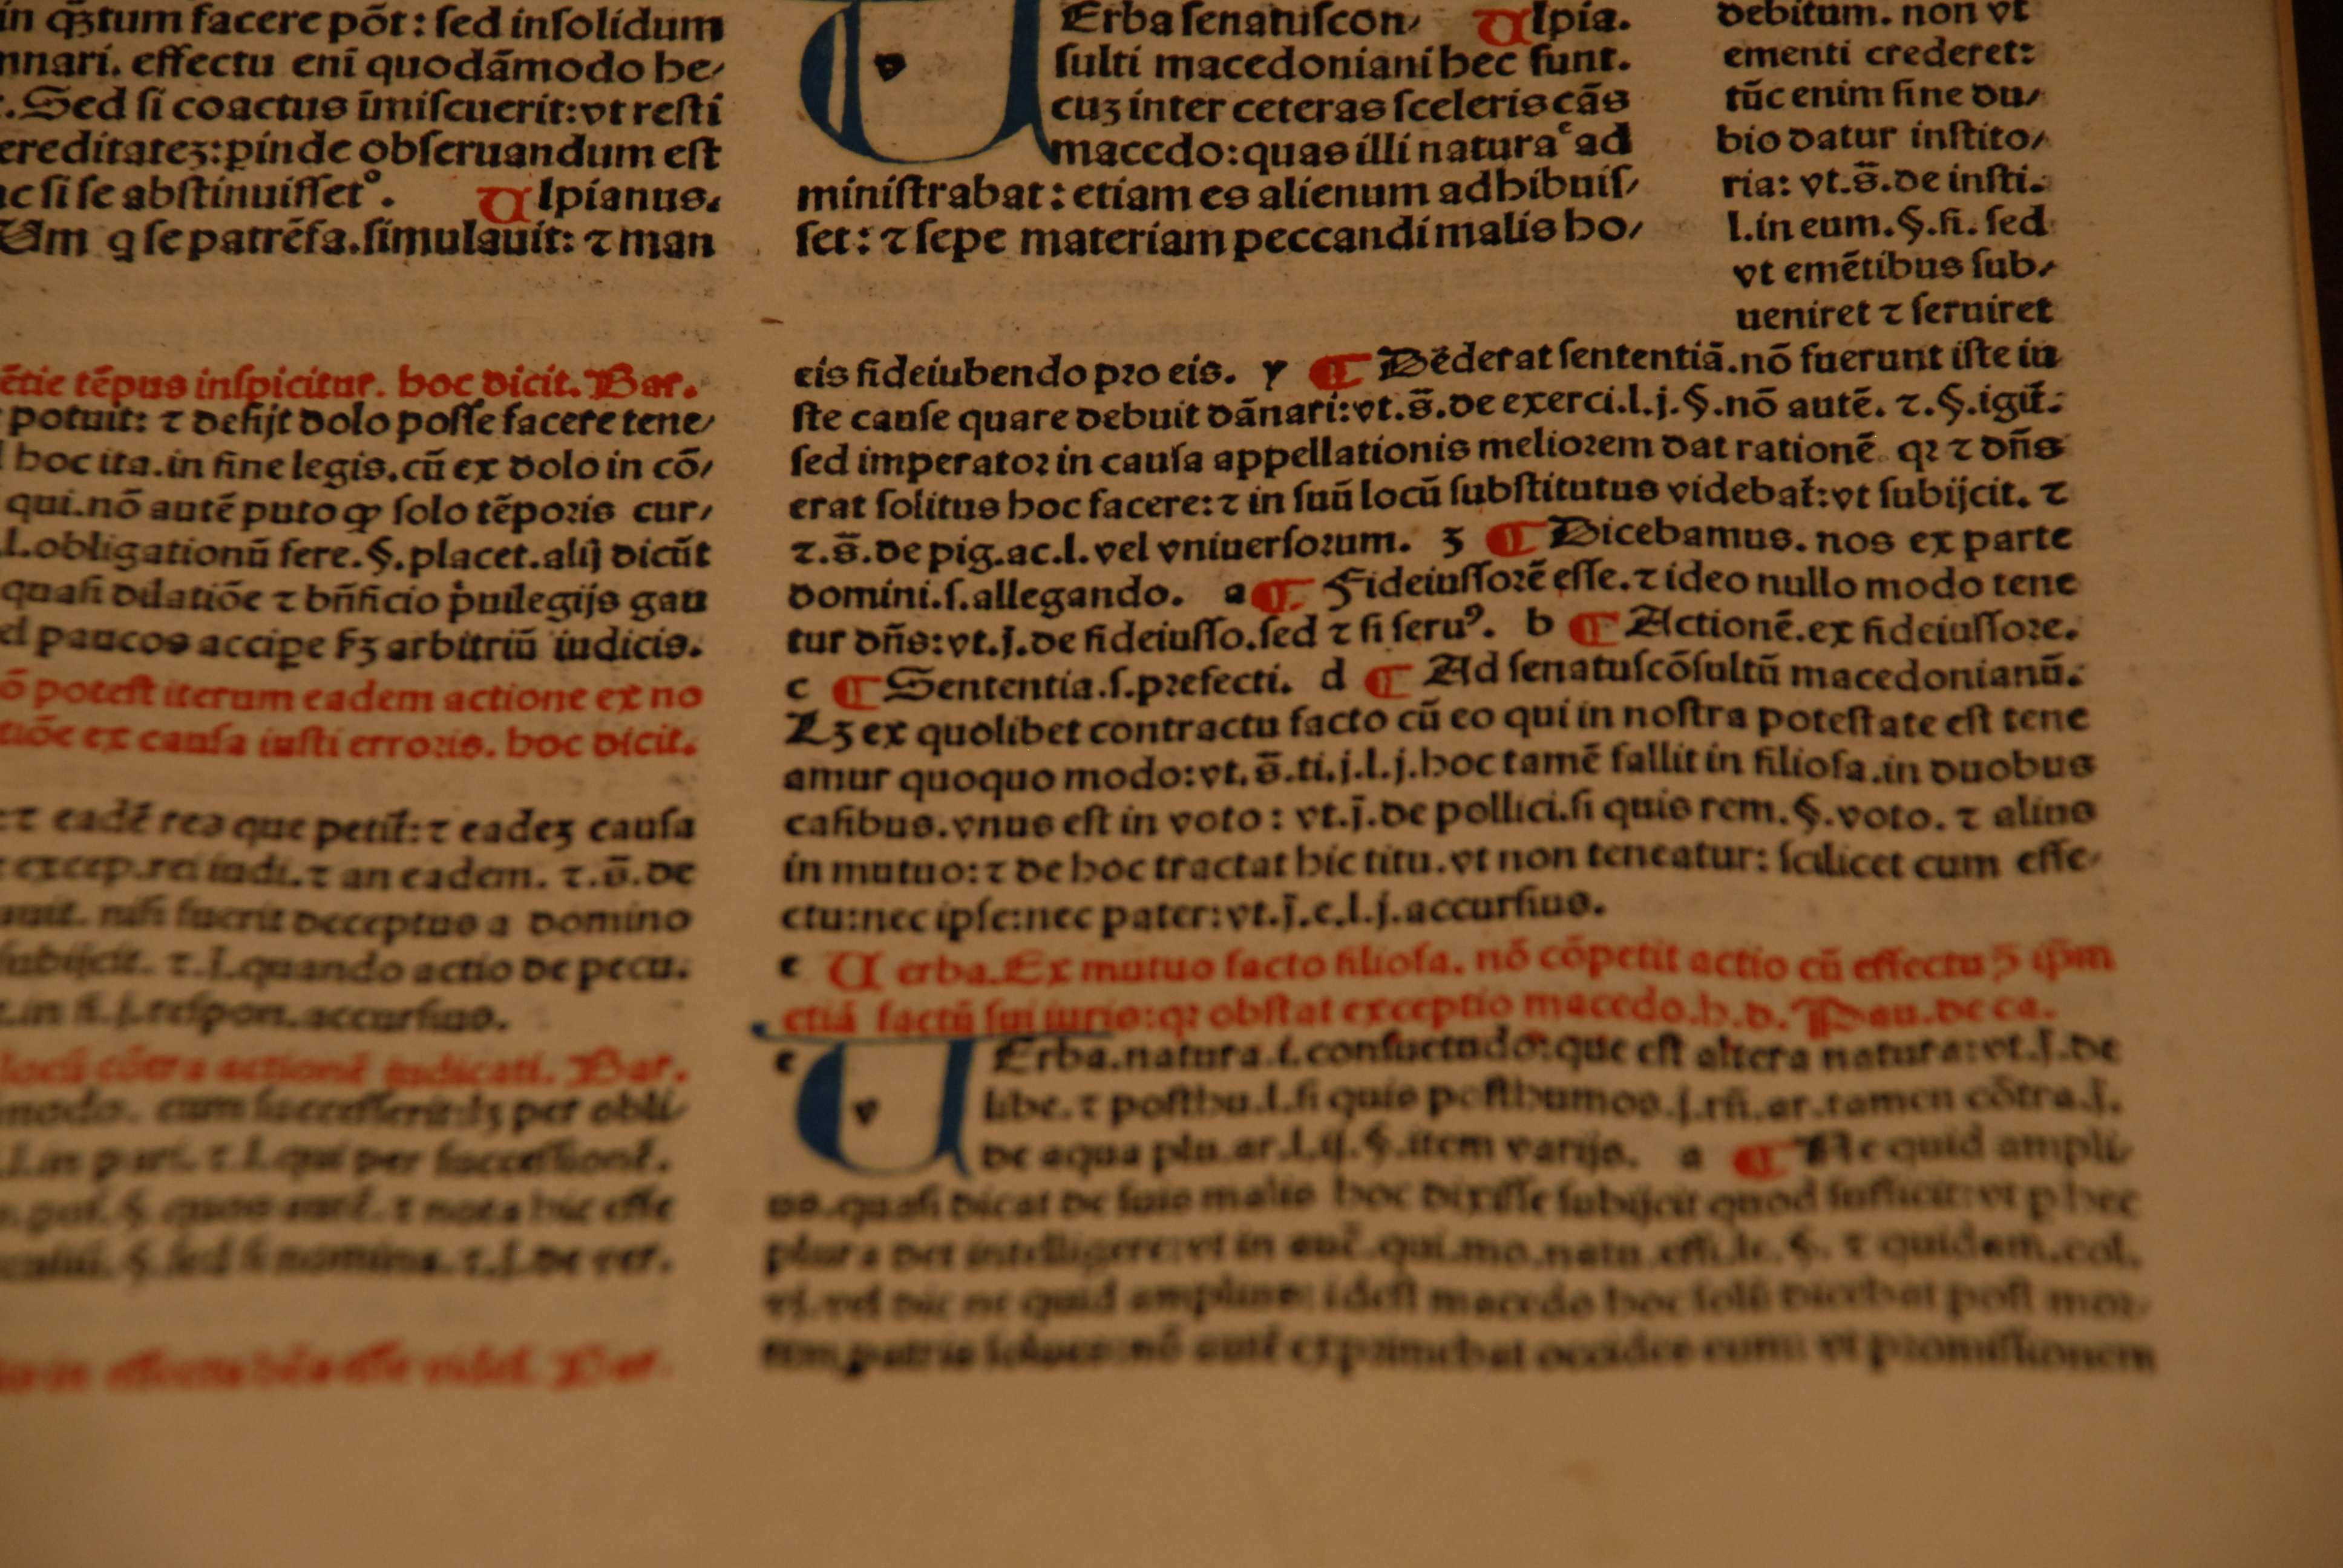 in qȝ̄tum facere põt: ſed inſolidum
nnari. effectu enī quodãmodo he⸝
.Sed ſi coactus īmiſcuerit:vt reſti
ereditateʒ:ꝑinde obſeruandum eſt
ac ſi ſe abſtinuiſſet°. Ulpianus.
Am q ſe patrēfa.ſimulauit: ⁊ man
ētie tēpus inſpicitur. hoc dicit. Bar.
potuit: ⁊ deſijt dolo poſſe facere tene⸝
hoc ita.in fine legis.cū ex dolo in cō⸝
qui.nō autē puto ꝙ ſolo tēporis cur⸝
l.obligationū fere.§.placet.alij dicūt
quaſi dilatiōe ⁊ bñficio p̓uilegijs gau
paucos accipe ẜʒ arbitriū iudicis.
ō poteſt iterum eadem actione ex no
tiōe ex cauſa iuſti erroris. hoc dicit.
:⁊ eadē res que petit̄:⁊ eadeʒ cauſa
excep.rei iudi.⁊ an eadem. ⁊.s̄.de
auit. niſi fuerit deceptus a domino
ſubijcit. ⁊.j̄.quando actio de pecu.
.in fi.j.reſpon.accurſius.
locū cōtra actionē iudicati. Bar.
modo. cum ſucceſſerit:ſʒ per obli⸝
Erba ſenatuſcon⸝ Ulpia.
ſulti macedoniani hec ſunt.
cuʒ inter ceteras ſceleris cãs
macedo:quas illi naturaᵉ ad
miniſtrabat: etiam es alienum adhibuiſ⸝
ſet: ⁊ ſepe materiam peccandi malis ho⸝
debitum. non vt
ementi crederet:
tūc enim ſine du⸝
bio datur inſtito⸝
ria: vt.s̄.de inſti.
l.in eum.§.fi. ſed
vt emētibus ſub⸝
ueniret ⁊ ſeruiret
eis fideiubendo pro eis. y ¶ Dēderat ſententiã.nō fuerunt iſte iu
ſte cauſe quare debuit dãnari:vt.s̄.de exerci.l.j.§.nō autē. ⁊.§.igit̄.
ſed imperator in cauſa appellationis meliorem dat rationē qꝛ ⁊ dñs
erat ſolitus hoc facere:⁊ in ſuū locū ſubſtitutus videbat̄:vt ſubijcit. ⁊
⁊.s̄.de pig.ac.l.vel vniuerſorum. ʒ ¶ Dicebamus. nos ex parte
domini.ſ.allegando. a ¶ Fideiuſſorē eſſe.⁊ ideo nullo modo tene
tur dñs:vt.j̄.de fideiuſſo.ſed ⁊ ſi ſeruꝰ. b ¶ Actionē.ex fideiuſſore.
c ¶ Sententia.ſ.prefecti. d ¶ Ad ſenatuſcōſultū macedonianū.
Lʒ ex quolibet contractu facto cū eo qui in noſtra poteſtate eſt tene
amur quoquo modo:vt.s̄.ti.j.l.j.hoc tamē fallit in filiofa.in duobus
caſibus.vnus eſt in voto: vt.j̄.de pollici.ſi quis rem.§.voto. ⁊ alius
in mutuo:⁊ de hoc tractat hic titu.vt non teneatur: ſcilicet cum effe⸝
ctu:nec ipſe:nec pater:vt.j̄.e.l.j.accurſius.
e Uerba.Ex mutuo facto filiofa. nō cōpetit actio cū effectu ꝯ̄ ip̄m
etiã factū ſui iuris:qꝛ obſtat exceptio macedo.h.d. Pau.de ca.
e UErba.natura.i.conſuetudo:que eſt altera natura:vt.j̄.de
libe.⁊ poſthu.l.ſi quis poſthumos.j.rñ.ar.tamen cōtra.j̄.
de aqua plu.ar.l.ij.§.item varijs. a ¶ Ne quid ampli⸝
us.quaſi dicat de ſuis malis hoc dixiſſe ſubijcit quod ſufficit:vt p hec
plura det intelligere:vt in auc̄.qui.mo.natu.effi.le.§. ⁊ quidam.col.
vj.vel dic ne quid amplius: ideſt macedo hoc ſolū dicebat poſt mor⸝
tem patris ſolues:nō autē exprimebat occides eum: vt promiſſionem